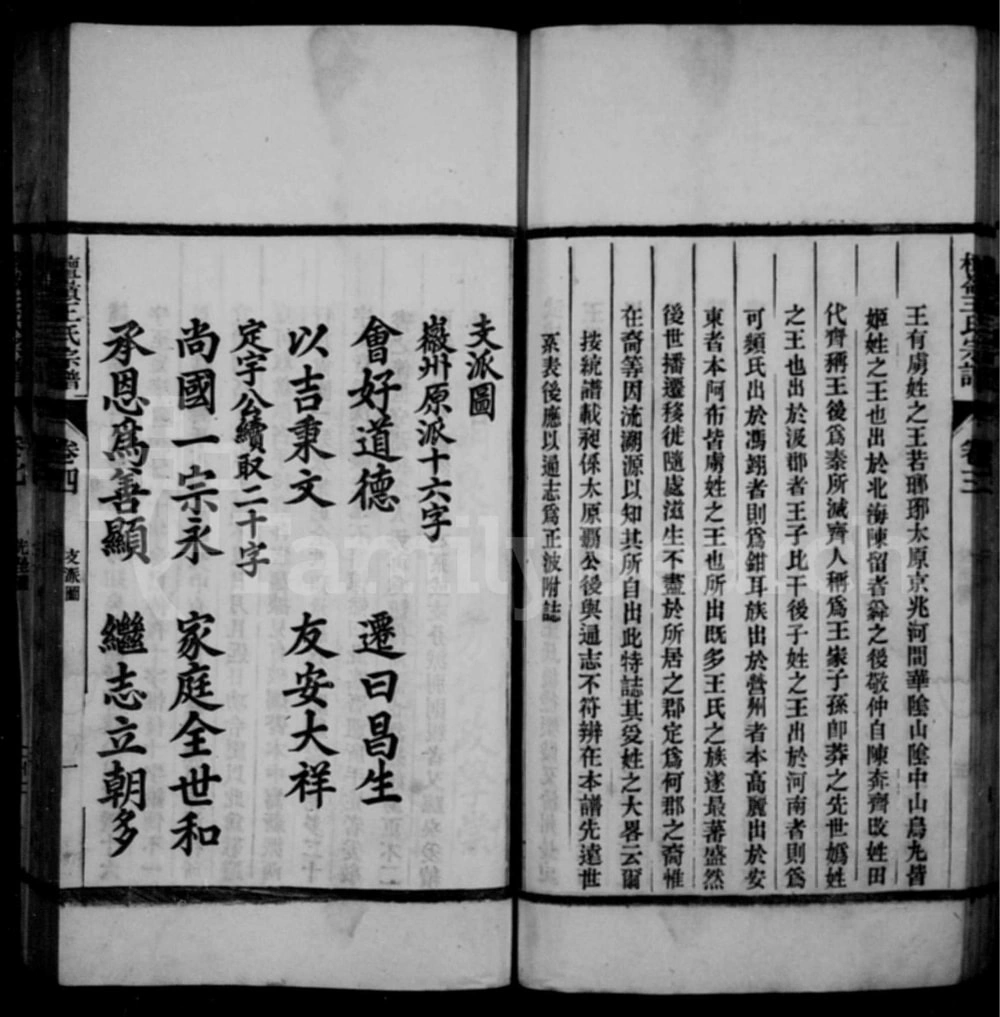 王氏宗譜
王有虞姓之王若瑯琊太原京兆河間華陰山陰中山烏丸皆
姬姓之王也出於北海陳留者舜之後敬仲自陳奔齊改姓田
代齊稱王後爲秦所滅齊人稱爲王家子孫卽莽之先世嬀姓
之王也出於汲郡者王子比干後子姓之王出於河南者則爲
可頻氏出於馮翊者則爲鉗耳族出於營州者本高麗出於安
東者本阿布皆虜姓之王也所出既多王氏之族遂最蕃盛然
後世播遷移徙隨處滋生不盡於所居之郡定爲何郡之裔惟
在裔等因流溯源以知其所自出此特誌其受姓之大畧云爾
按統譜載昶係太原覇公後與通志不符辨在本譜先遠世
系表後應以通志爲正波附誌
支派圖
徽州原派十六字
會好道德 遷日昌生
以吉秉文 友安大祥
定字公續取二十字
尚國一宗永 家庭全世和
承恩爲善顯 繼志立朝多
王氏宗譜
卷四
支派圖
一
FamilySearch